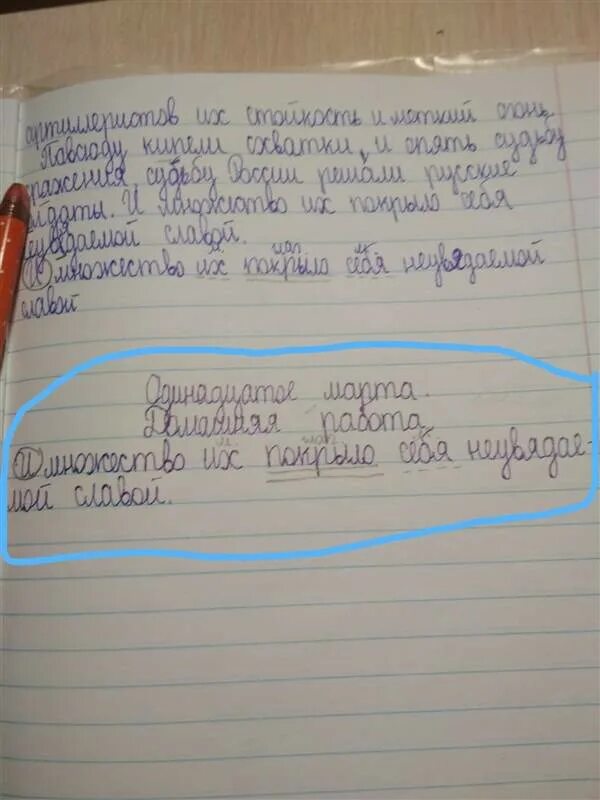 артиллеристов их стойкость и меткий огонь.
Повсюду кипели схватки, и опять судьбу
сражения, судьбу России решали русские
солдаты. И множество их покрыло себя
неувядаемой славой.
И множество их покрыло себя неувядаемой
славой
Одинадцатое марта.
Домашняя работа.
И множество их покрыло себя неувядае-
мой славой.